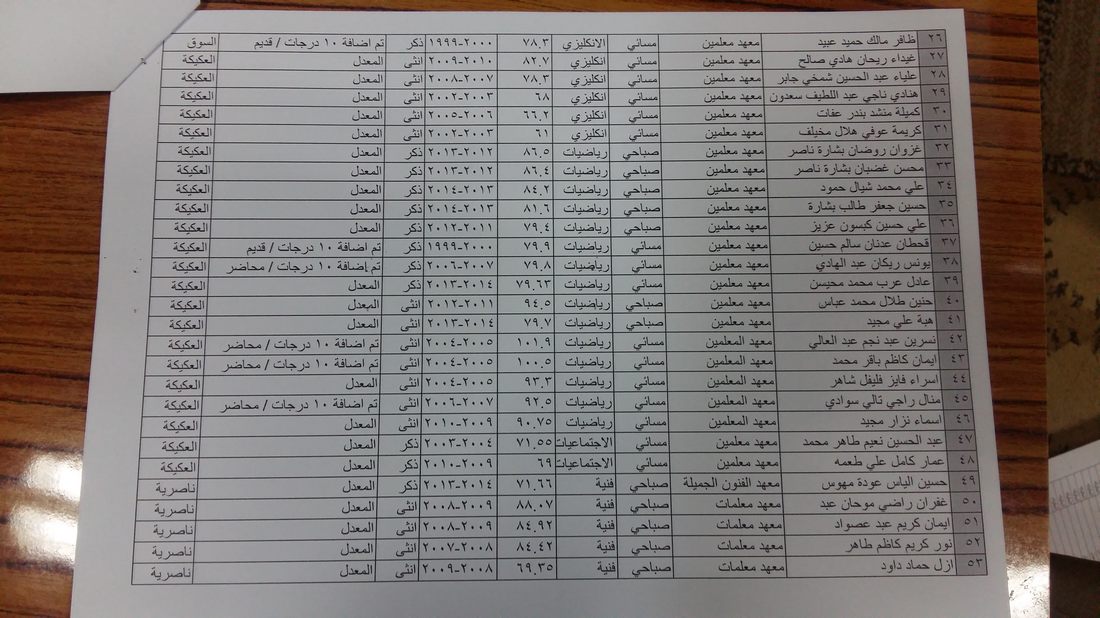 ٢٦ ظافر مالك حميد عبيد معهد معلمين مسائي الانكليزي ٧٨.٣ ١٩٩٩-٢٠٠٠ ذكر تم اضافة ١٠ درجات / قديم السوق
٢٧ غيداء ريحان هادي صالح معهد معلمين مسائي انكليزي ٨٢.٧ ٢٠٠٩-٢٠١٠ انثى المعدل العكيكة
٢٨ علياء عبد الحسين شمخي جابر معهد معلمين مسائي انكليزي ٧٨,٣ ٢٠٠٧-٢٠٠٨ انثى المعدل العكيكة
٢٩ هنادي ناجي عبد اللطيف سعدون معهد معلمين مسائي انكليزي ٦٨ ٢٠٠٣-٢٠٠٢ انثى المعدل العكيكة
٣٠ كميلة منشد بندر عفات معهد معلمين مسائي انكليزي ٦٦.٢ ٢٠٠٦-٢٠٠٥ انثى المعدل العكيكة
٣١ كريمة عوفي هلال مخيلف معهد معلمين مسائي انكليزي ٦١ ٢٠٠٣-٢٠٠٢ انثى المعدل العكيكة
٣٢ غزوان روضان بشارة ناصر معهد معلمين صباحي رياضيات ٨٦.٥ ٢٠١٢-٢٠١٣ ذكر المعدل العكيكة
٣٣ محسن غضبان بشارة ناصر معهد معلمين صباحي رياضيات ٨٦.٤ ٢٠١٢-٢٠١٣ ذكر المعدل العكيكة
٣٤ علي محمد شيال حمود معهد معلمين صباحي رياضيات ٨٤.٢ ٢٠١٣-٢٠١٤ ذكر المعدل العكيكة
٣٥ حسين جعفر طالب بشارة معهد معلمين صباحي رياضيات ٨١.٦ ٢٠١٣-٢٠١٤ ذكر المعدل العكيكة
٣٦ علي حسين كبسون عزيز معهد معلمين صباحي رياضيات ٧٩.٤ ٢٠١١-٢٠١٢ ذكر المعدل العكيكة
٣٧ قحطان عدنان سالم حسين معهد معلمين مسائي رياضيات ٧٩.٩ ٢٠٠٠-١٩٩٩ ذكر تم اضافة ١٠ درجات / قديم العكيكة
٣٨ يونس ريكان عبد الهادي معهد معلمين مسائي رياضيات ٧٩.٨ ٢٠٠٧-٢٠٠٦ ذكر تم إضافة ١٠ درجات / محاضر العكيكة
٣٩ عادل عرب محمد محيسن معهد معلمين مسائي رياضيات ٧٩.٦٣ ٢٠١٤-٢٠١٣ ذكر المعدل العكيكة
٤٠ حنين طلال محمد عباس معهد معلمين صباحي رياضيات ٩٤.٥ ٢٠١١-٢٠١٢ انثى المعدل العكيكة
٤١ هبة علي مجيد معهد معلمين صباحي رياضيات ٧٩.٧ ٢٠١٤-٢٠١٣ انثى المعدل العكيكة
٤٢ نسرين عبد نجم عبد العالي معهد المعلمين مسائي رياضيات ١٠١.٩ ٢٠٠٥-٢٠٠٤ انثى تم اضافة ١٠ درجات / محاضر العكيكة
٤٣ ايمان كاظم باقر محمد معهد المعلمين مسائي رياضيات ١٠٠.٥ ٢٠٠٥-٢٠٠٤ انثى تم اضافة ١٠ درجات / محاضر العكيكة
٤٤ اسراء فايز فليفل شاهر معهد المعلمين مسائي رياضيات ٩٣.٣ ٢٠٠٥-٢٠٠٤ انثى المعدل العكيكة
٤٥ منال راجي تالي سوادي معهد المعلمين مسائي رياضيات ٩٢.٥ ٢٠٠٧-٢٠٠٦ انثى تم اضافة ١٠ درجات / محاضر العكيكة
٤٦ اسماء نزار مجيد معهد المعلمين مسائي رياضيات ٩٠.٧٥ ٢٠٠٩-٢٠١٠ انثى المعدل العكيكة
٤٧ عبد الحسين نعيم طاهر محمد معهد معلمين مسائي الاجتماعيات ٧١.٥٥ ٢٠٠٤-٢٠٠٣ ذكر المعدل العكيكة
٤٨ عمار كامل علي طعمه معهد معلمين مسائي الاجتماعيات ٦٩ ٢٠٠٩-٢٠١٠ ذكر المعدل العكيكة
٤٩ حسين الياس عودة مهوس معهد الفنون الجميلة صباحي فنية ٧١.٦٦ ٢٠١٤-٢٠١٣ ذكر المعدل ناصرية
٥٠ غفران راضي موحان عبد معهد معلمات صباحي فنية ٨٨.٠٧ ٢٠٠٩-٢٠٠٨ انثى المعدل ناصرية
٥١ ايمان كريم عبد عصواد معهد معلمات صباحي فنية ٨٤.٩٢ ٢٠٠٩-٢٠٠٨ انثى المعدل ناصرية
٥٢ نور كريم كاظم طاهر معهد معلمات صباحي فنية ٨٤.٤٢ ٢٠٠٨-٢٠٠٧ انثى المعدل ناصرية
٥٣ ازل حماد داود معهد معلمات صباحي فنية ٦٩.٣٥ ٢٠٠٨-٢٠٠٩ انثى المعدل ناصرية